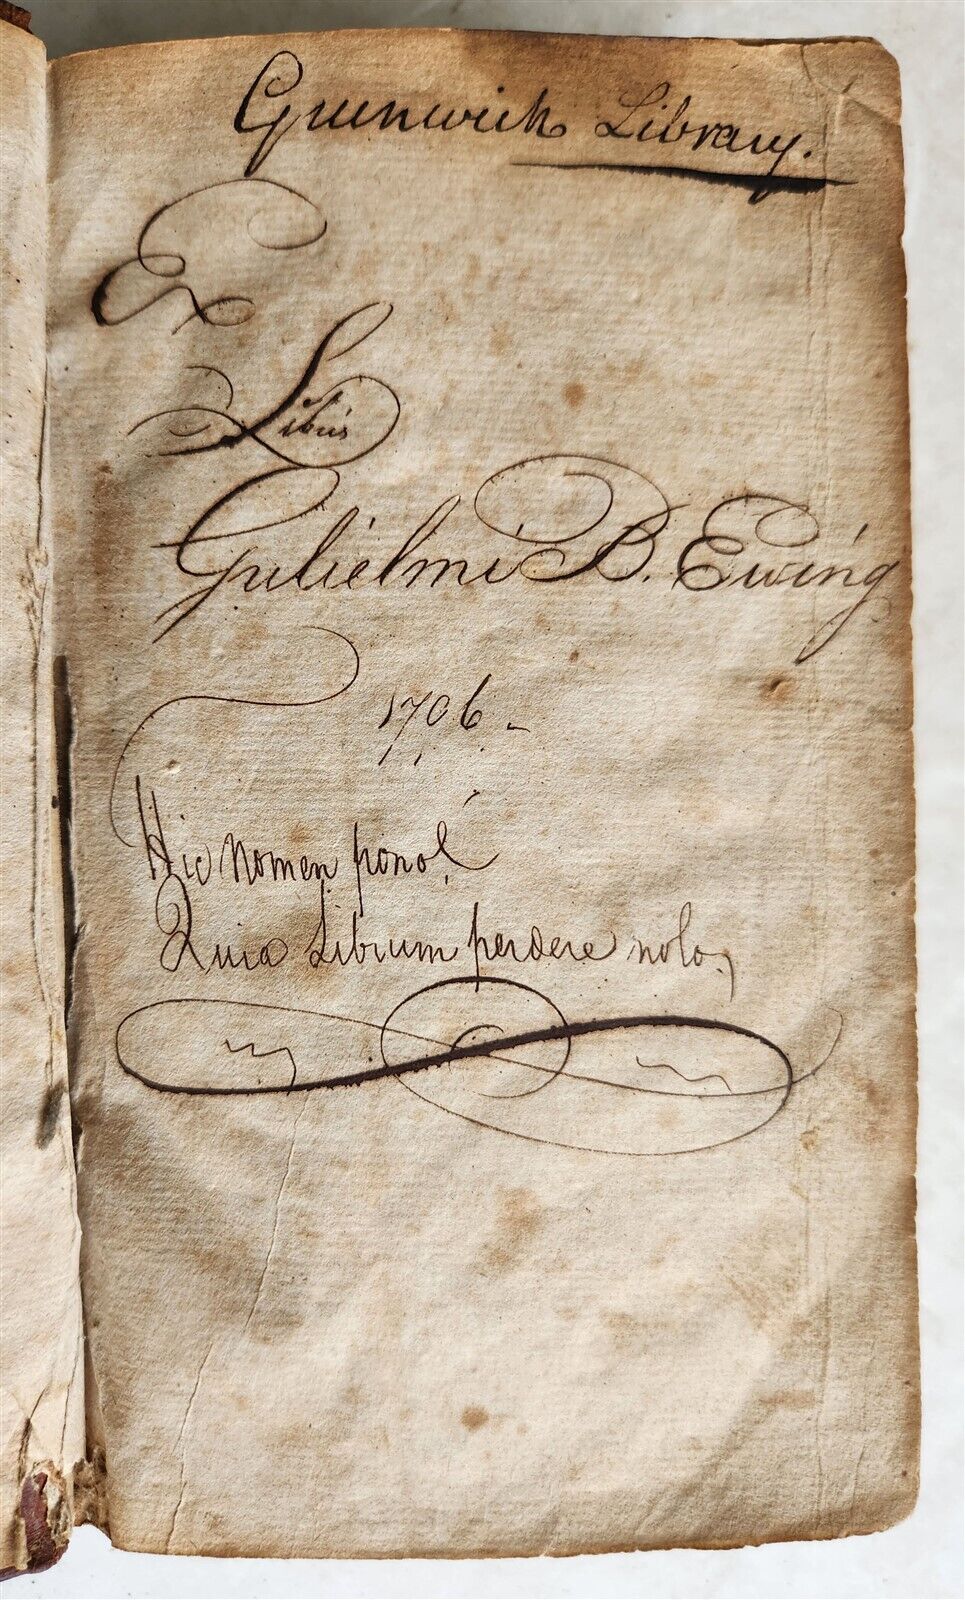 Greenwich Library.
Ex
Libris
Gulielmi B. Ewing
1706 -
Hic Nomen pono!
Quia Librum perdere nolo.